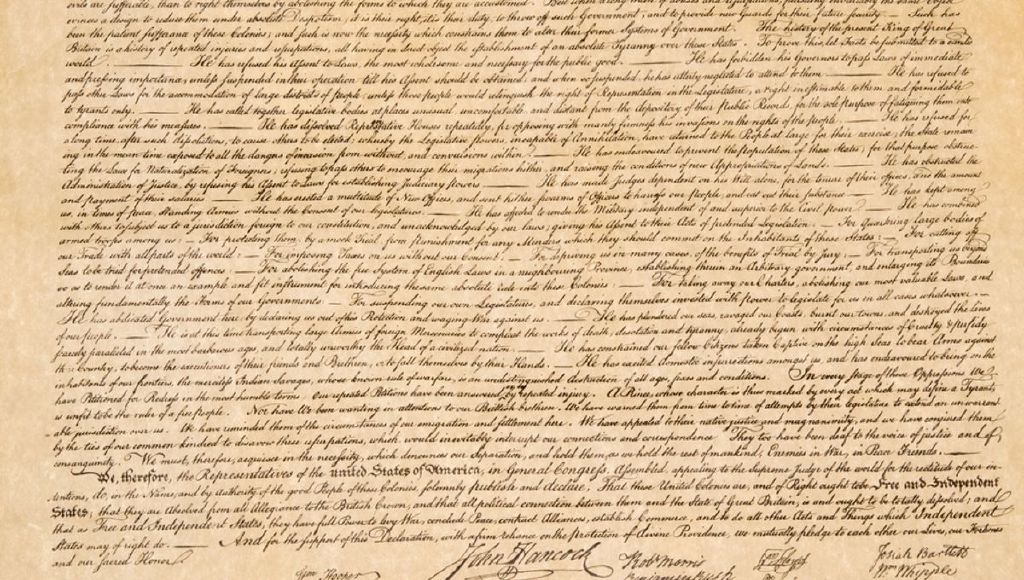 are sufferable, than to right themselves by abolishing the forms to which they are accustomed. But when a long train of abuses and usurpations, pursuing invariably the same Object
evinces a design to reduce them under absolute Despotism, it is their right, it is their duty, to throw off such Government, and to provide new Guards for their future security. — Such has
been the patient sufferance of these Colonies; and such is now the necessity which constrains them to alter their former Systems of Government. The history of the present King of Great
Britain is a history of repeated injuries and usurpations, all having in direct object the establishment of an absolute Tyranny over these States. To prove this, let Facts be submitted to a candid
world. — He has refused his Assent to Laws, the most wholesome and necessary for the public good. — He has forbidden his Governors to pass Laws of immediate
and pressing importance, unless suspended in their operation till his Assent should be obtained; and when so suspended, he has utterly neglected to attend to them. — He has refused to
pass other Laws for the accommodation of large districts of people, unless those people would relinquish the right of Representation in the Legislature, a right inestimable to them and formidable
to tyrants only. — He has called together legislative bodies at places unusual, uncomfortable, and distant from the depository of their Public Records, for the sole purpose of fatiguing them into
compliance with his measures. — He has dissolved Representative Houses repeatedly, for opposing with manly firmness his invasions on the rights of the people. — He has refused for
a long time, after such dissolutions, to cause others to be elected; whereby the Legislative powers, incapable of Annihilation, have returned to the People at large for their exercise; the State remain
ing in the mean time exposed to all the dangers of invasion from without, and convulsions within. — He has endeavoured to prevent the population of these States; for that purpose obstruc
ting the Laws for Naturalization of Foreigners; refusing to pass others to encourage their migrations hither, and raising the conditions of new Appropriations of Lands. — He has obstructed the
Administration of Justice, by refusing his Assent to Laws for establishing Judiciary powers. — He has made Judges dependent on his Will alone, for the tenure of their offices, and the amount
and payment of their salaries. — He has erected a multitude of New Offices, and sent hither swarms of Officers to harrass our people, and eat out their substance. — He has kept among
us, in times of peace, Standing Armies without the Consent of our legislatures. — He has affected to render the Military independent of and superior to the Civil power. — He has combined
with others to subject us to a jurisdiction foreign to our constitution, and unacknowledged by our laws; giving his Assent to their Acts of pretended Legislation: — For Quartering large bodies of
armed troops among us: — For protecting them, by a mock Trial, from punishment for any Murders which they should commit on the Inhabitants of these States: — For cutting off
our Trade with all parts of the world: — For imposing Taxes on us without our Consent: — For depriving us in many cases, of the benefits of Trial by Jury: — For transporting us beyond
Seas to be tried for pretended offences: — For abolishing the free System of English Laws in a neighbouring Province, establishing therein an Arbitrary government, and enlarging its Boundaries
so as to render it at once an example and fit instrument for introducing the same absolute rule into these Colonies: — For taking away our Charters, abolishing our most valuable Laws, and
altering fundamentally the Forms of our Governments: — For suspending our own Legislatures, and declaring themselves invested with power to legislate for us in all cases whatsoever. —
He has abdicated Government here, by declaring us out of his Protection and waging War against us. — He has plundered our seas, ravaged our Coasts, burnt our towns, and destroyed the lives
of our people. — He is at this time transporting large Armies of foreign Mercenaries to compleat the works of death, desolation and tyranny, already begun with circumstances of Cruelty & perfidy
scarcely paralleled in the most barbarous ages, and totally unworthy the Head of a civilized nation. — He has constrained our fellow Citizens taken Captive on the high Seas to bear Arms against
their Country, to become the executioners of their friends and Brethren, or to fall themselves by their Hands. — He has excited domestic insurrections amongst us, and has endeavoured to bring on the
inhabitants of our frontiers, the merciless Indian Savages, whose known rule of warfare, is an undistinguished destruction of all ages, sexes and conditions. In every stage of these Oppressions We
have Petitioned for Redress in the most humble terms: Our repeated Petitions have been answered only by repeated injury. A Prince, whose character is thus marked by every act which may define a Tyrant,
is unfit to be the ruler of a free people. Nor have We been wanting in attentions to our Brittish brethren. We have warned them from time to time of attempts by their legislature to extend an unwarrant
able jurisdiction over us. We have reminded them of the circumstances of our emigration and settlement here. We have appealed to their native justice and magnanimity, and we have conjured them
by the ties of our common kindred to disavow these usurpations, which, would inevitably interrupt our connections and correspondence. They too have been deaf to the voice of justice and of
consanguinity. We must, therefore, acquiesce in the necessity, which denounces our Separation, and hold them, as we hold the rest of mankind, Enemies in War, in Peace Friends. —
We, therefore, the Representatives of the united States of America, in General Congress, Assembled, appealing to the Supreme Judge of the world for the rectitude of our in-
tentions, do, in the Name, and by Authority of the good People of these Colonies, solemnly publish and declare, That these United Colonies are, and of Right ought to be Free and Independent
States; that they are Absolved from all Allegiance to the British Crown, and that all political connection between them and the State of Great Britain, is and ought to be totally dissolved; and
that as Free and Independent States, they have full Power to levy War, conclude Peace, contract Alliances, establish Commerce, and to do all other Acts and Things which Independent
States may of right do. — And for the support of this Declaration, with a firm reliance on the protection of divine Providence, we mutually pledge to each other our Lives, our Fortunes
and our sacred Honor.
John Hancock
Wm Hooper
Robt Morris
Benjamin Rush
Josiah Bartlett
Wm Whipple